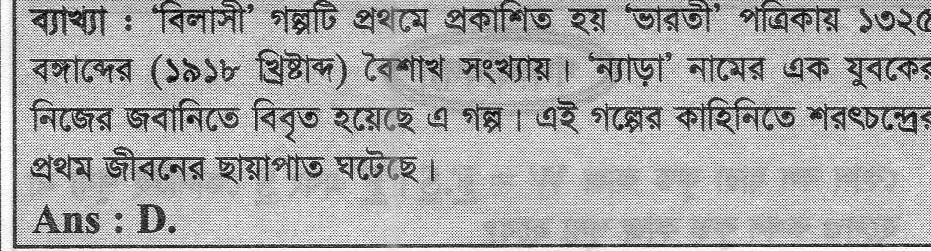 ব্যাখ্যা : 'বিলাসী' গল্পটি প্রথমে প্রকাশিত হয় 'ভারতী' পত্রিকায় ১৩২৫
বঙ্গাব্দের (১৯১৮ খ্রিষ্টাব্দ) বৈশাখ সংখ্যায়। 'ন্যাড়া' নামের এক যুবকের
নিজের জবানিতে বিবৃত হয়েছে এ গল্প। এই গল্পের কাহিনিতে শরৎচন্দ্রের
প্রথম জীবনের ছায়াপাত ঘটেছে।
Ans : D.